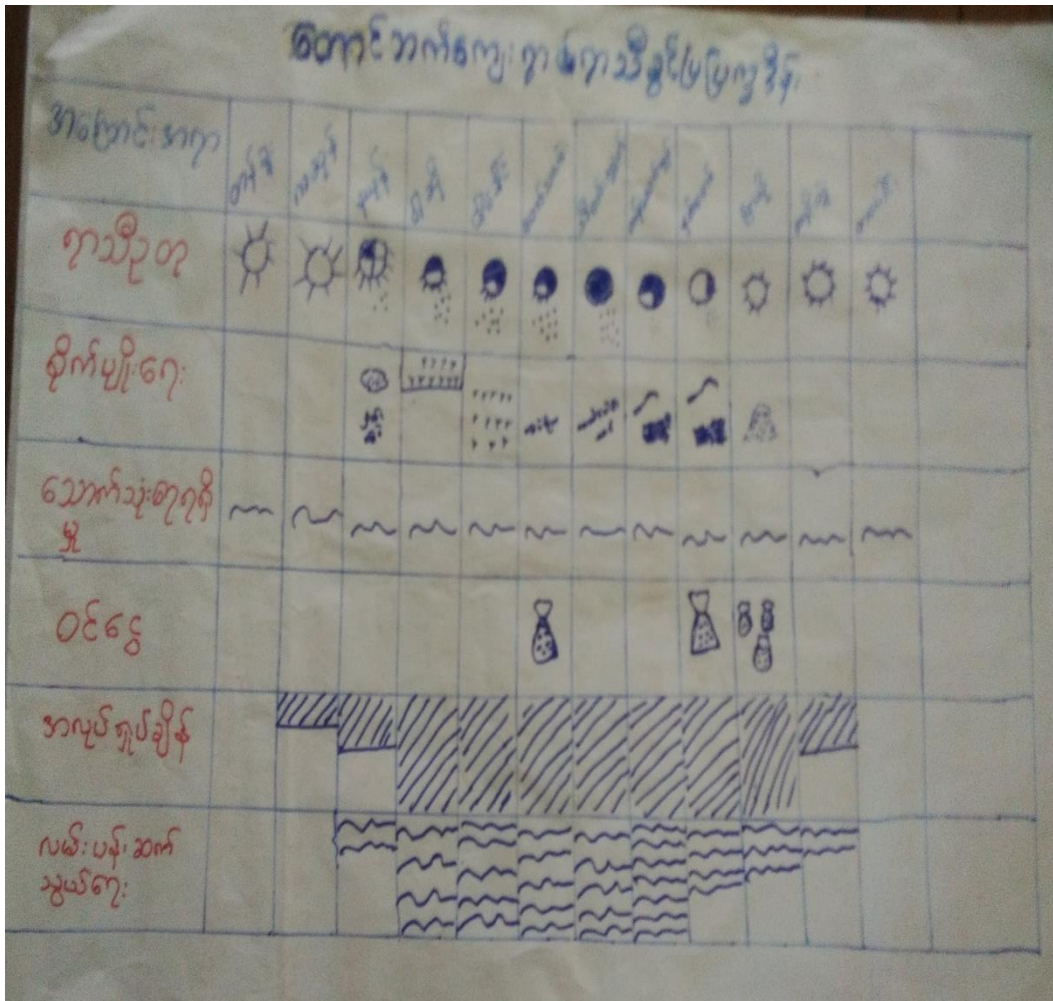 တောင်ဘက်ကျေးရွာ၏ရာသီခွင်ပြပြက္ခဒိန်
အကြောင်းအရာ
တန်ခူး
ကဆုန်
နယုန်
ဝါဆို
ဝါခေါင်
တော်သလင်း
သီတင်းကျွတ်
တန်ဆောင်မုန်း
နတ်တော်
ပြာသို
တပို့တွဲ
တပေါင်း
ရာသီဥတု
စိုက်ပျိုးရေး
သောက်သုံးရေရရှိ
မှု
ဝင်ငွေ
အလုပ်ရှုပ်ချိန်
လမ်းပန်းဆက်
သွယ်ရေး